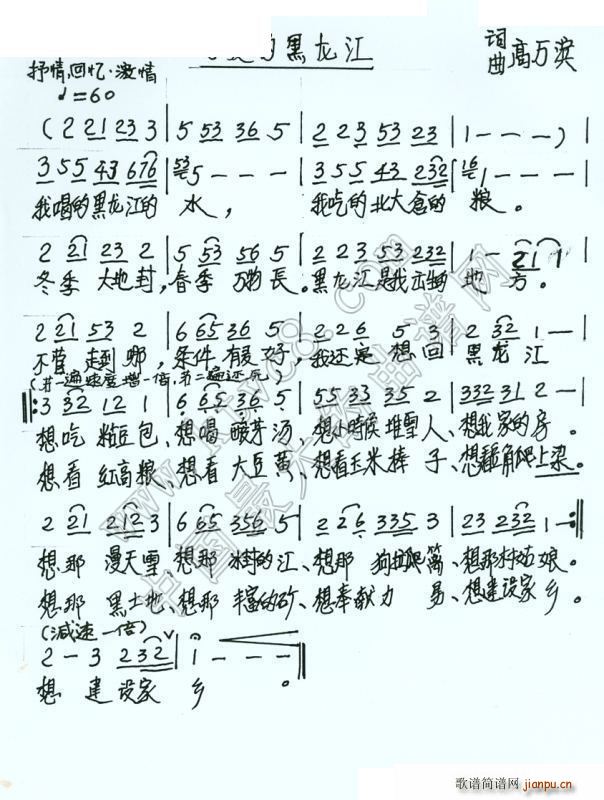 的黑龙江
词
曲 高万滨
抒情.回忆.激情
♩=60
(2 21 23 3 | 5 53 36 5 | 2 23 53 23 | 1 - - - )
3 55 43 676 | 5 - - - | 3 55 43 232 | 1 - - -
我喝的黑龙江的 水， 我吃的北大仓的 粮。
2 21 23 2 | 5 53 56 5 | 2 23 53 232 | 1 - 21 1
冬季 大地封，春季 万物長。黑龙江是我 地 方。
2 21 53 2 | 6 65 36 5 | 2 26 5 3 | 2 32 1 -
不管 走到 哪，条件 有多 好，我还是 想回 黑龙江
(第一遍速度增一倍，第二遍还元)
3 32 12 1 | 6 65 36 5 | 55 33 35 2 | 332 31 2 -
想吃 粘豆包、想喝 酸芽汤、想小时候 堆雪人、想我家的房。
想看 红高粮、想看 大豆黄、想看玉米棒 子、想 角爬上梁。
2 21 212 3 | 6 65 356 5 | 2 26 335 3 | 23 232 1 -
想那 漫天雪、想那 冰封的江、想那 狗拉爬篱、想那村姑娘。
想那 黑土地、想那 丰富的矿、想奉献力 量、想建设家 乡。
(减速一倍)
2 - 3 232 | 1 - - -
想 建设家 乡 。
www.jpwc8.com
中国最大的曲谱网
歌谱简谱网
jianpu.cn